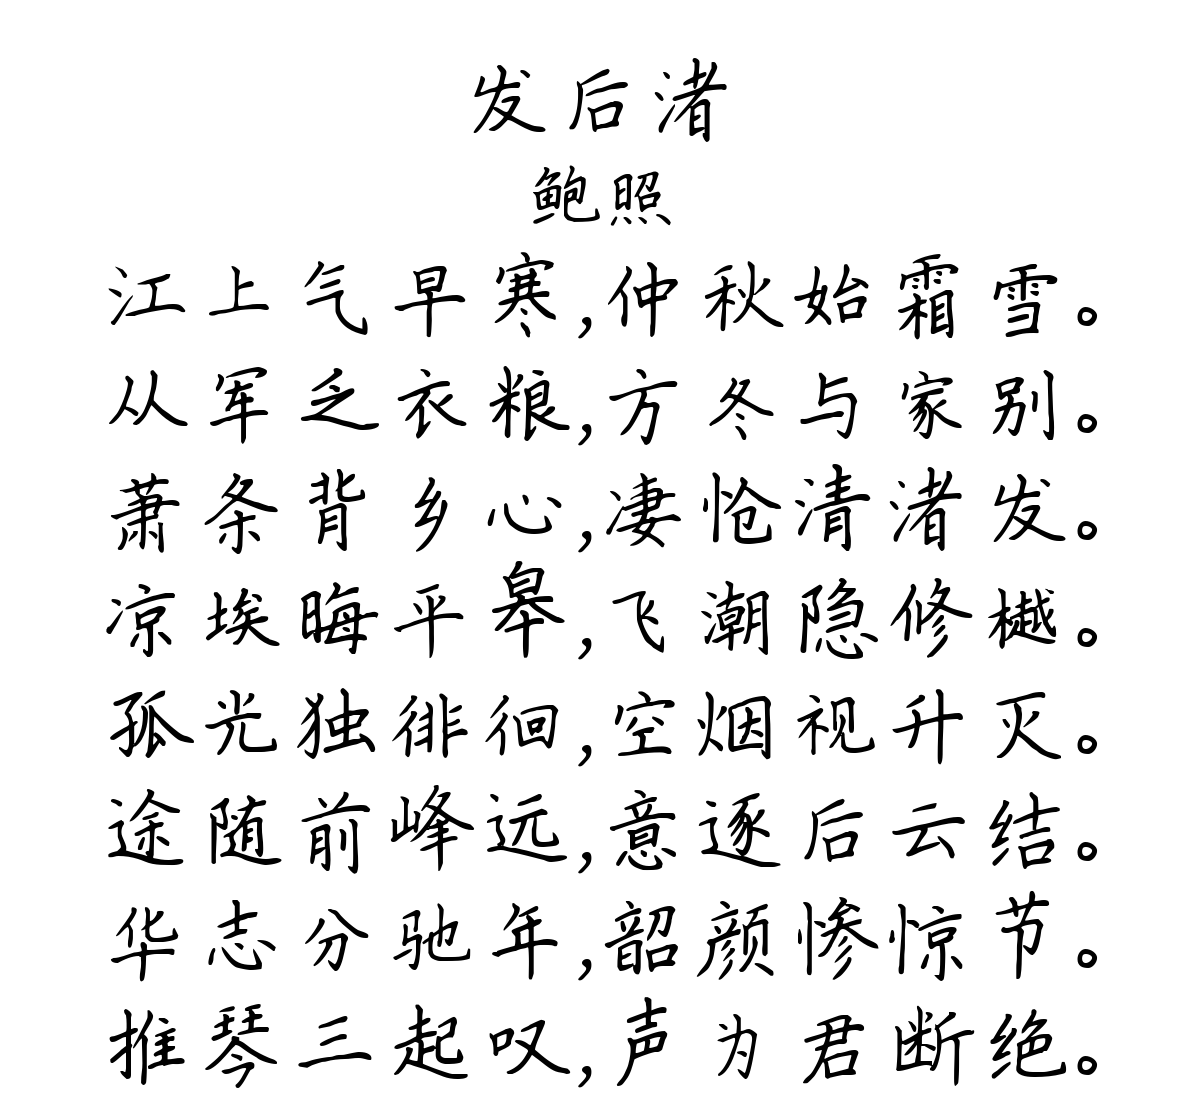 发后渚
鲍照
江上气早寒,仲秋始霜雪。
从军乏衣粮,方冬与家别。
萧条背乡心,凄怆清渚发。
凉埃晦平皋,飞潮隐修樾。
孤光独徘徊,空烟视升灭。
途随前峰远,意逐后云结。
华志分驰年,韶颜惨惊节。
推琴三起叹,声为君断绝。